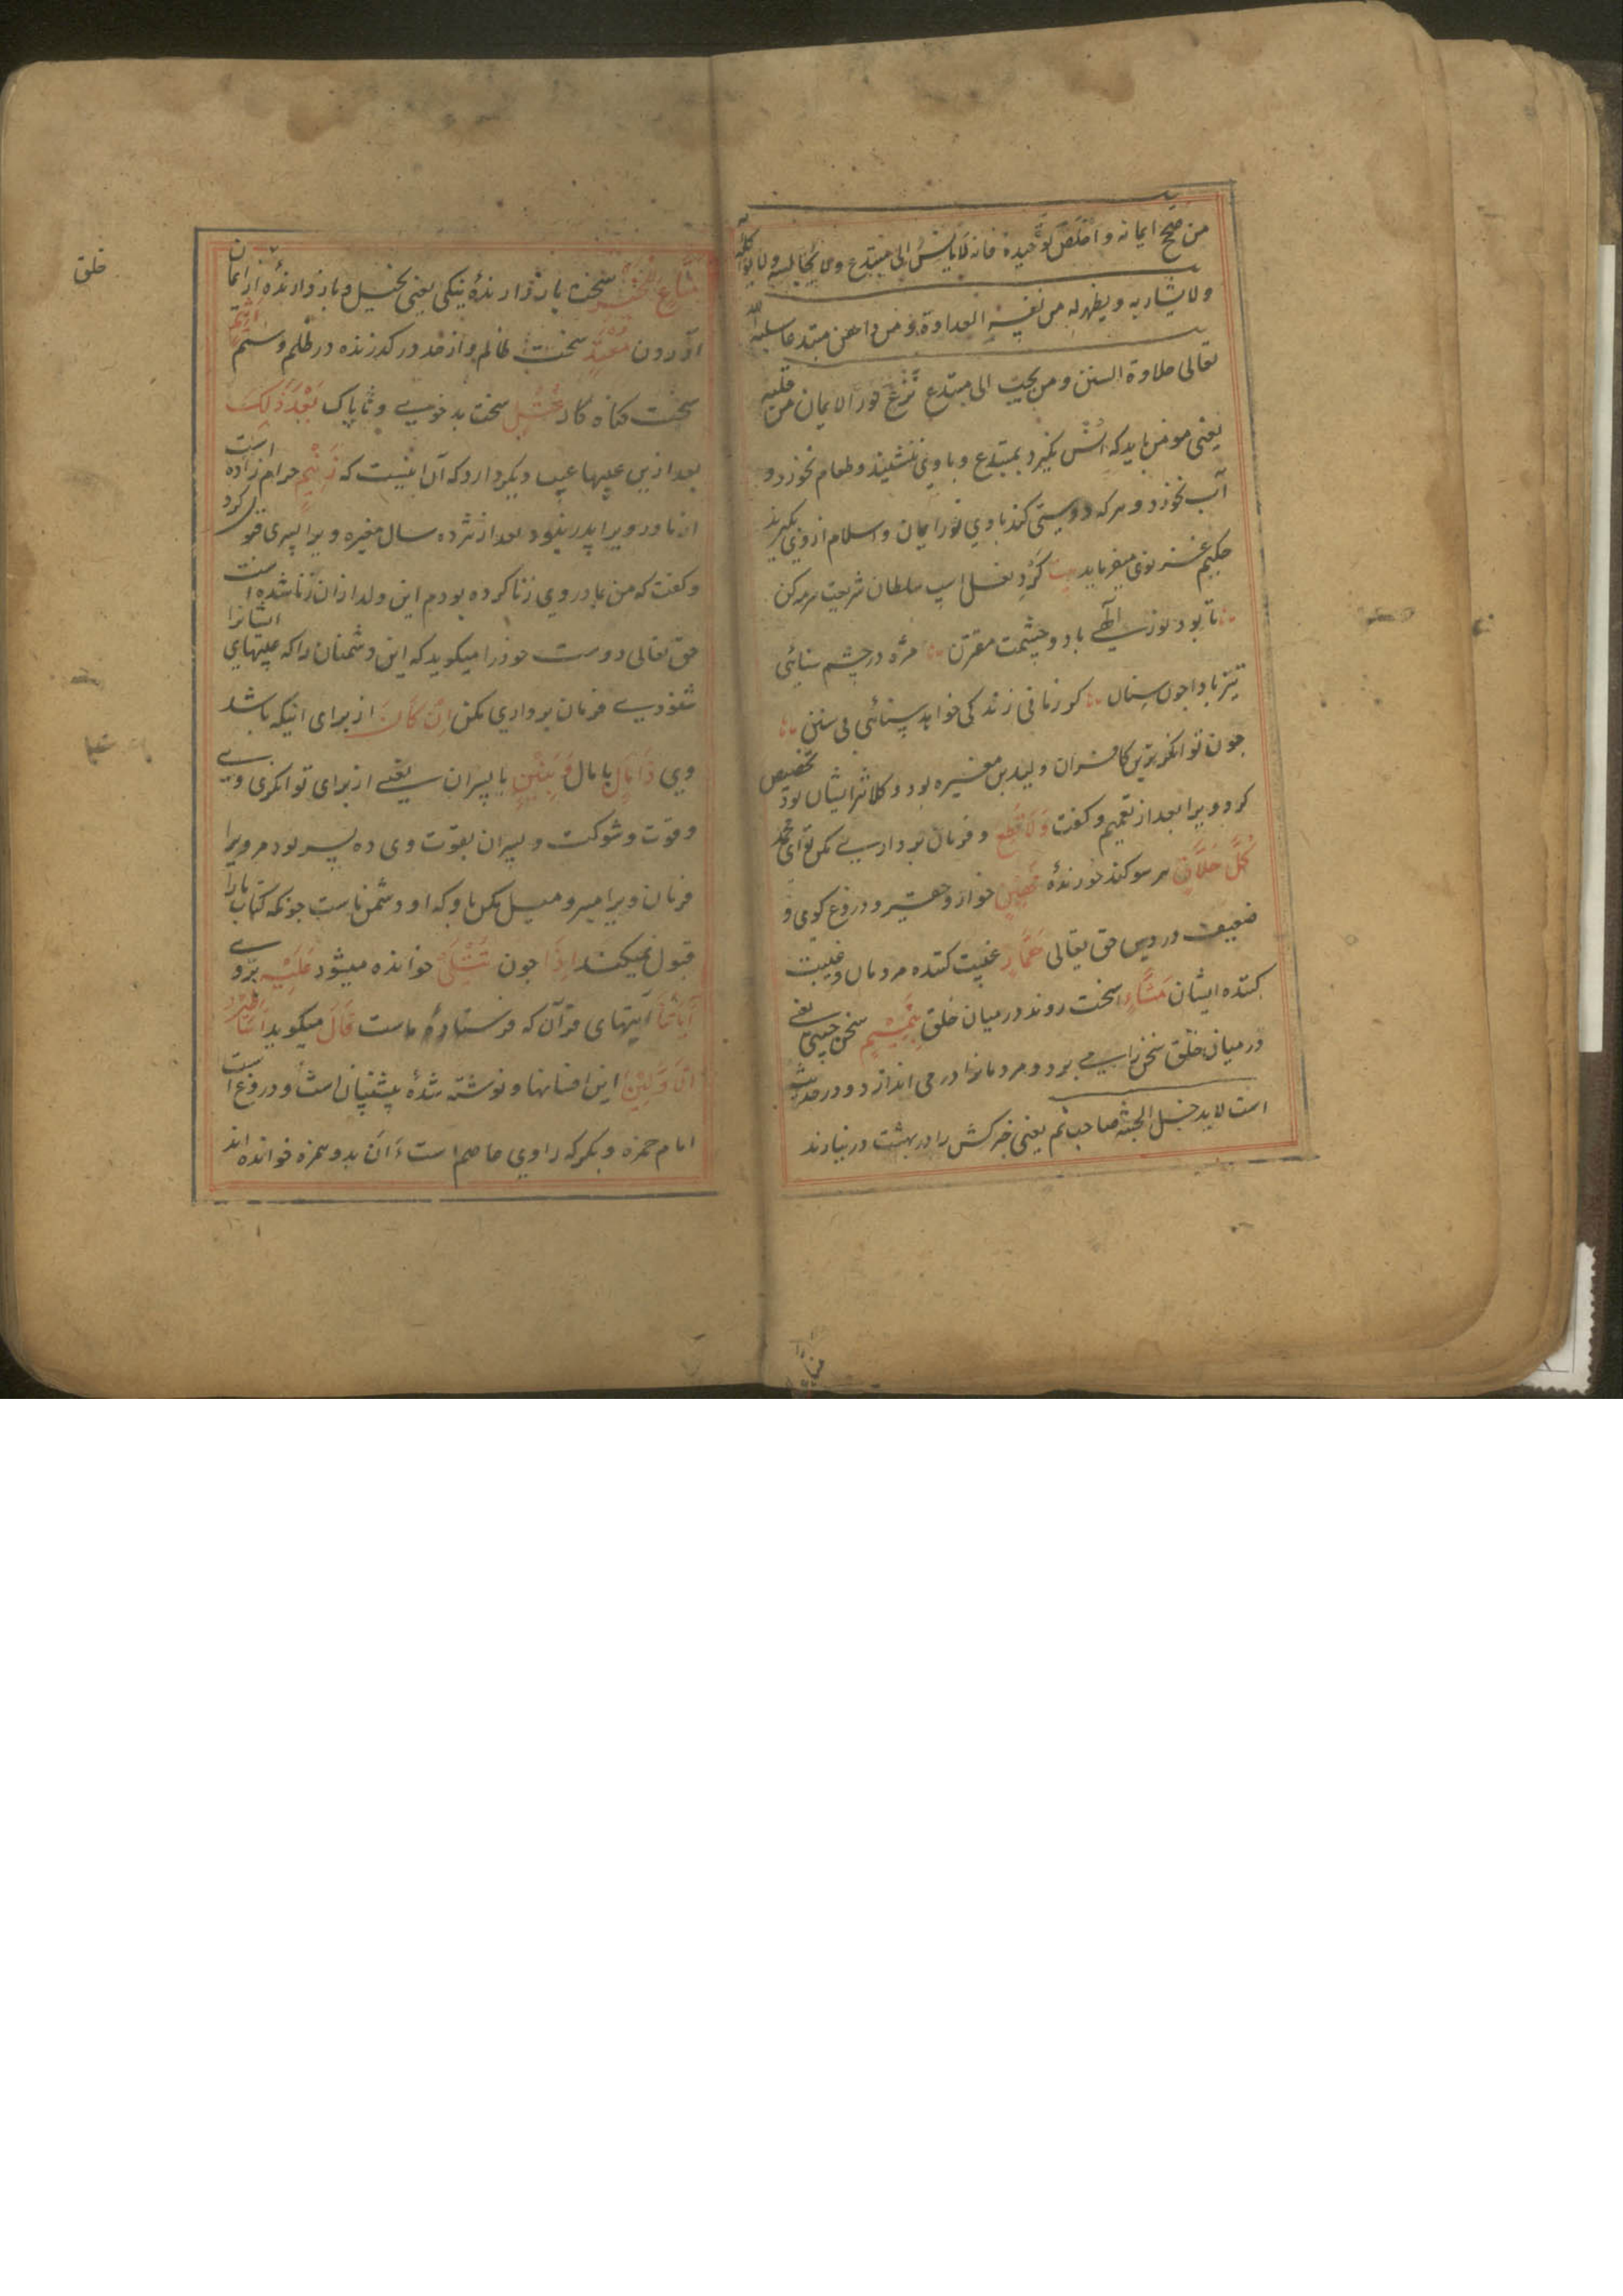 من صحح ایمانه و اخلص توحیده فانه لا یانس الی مبتدع ولا یجالسه ولا یواکله
ولا یشاربه و یظهر له من نفسه العداوة و من داهن مبتدعا سلبه الله
تعالی حلاوة السنن و من یحبب الی مبتدع نزع نور الایمان من قلبه
یعنی مومن باید که انس نگیرد بمبتدع و با وی ننشیند و طعام نخورد و
آب نخورد و هر که دوستی کند با وی نور ایمان و اسلام از وی بگریزد
حکیم غزنوی میفرماید بیت گرد نعل اسپ سلطان شریعت سرمه کن
تا بود نور الهی با دو چشمت مقترن مژه در چشم سنائی
تیز بادا چون سنان گر زمانی زندگی خواهد سنائی بی سنن
چون توانگرترین کافران ولید بن مغیره بود و کلانتر ایشان بود تخصیص
کرد ویرا بعد از تعمیم و گفت وَلَا تُطِعْ و فرمان برداری مکن تو ای محمد
كُلَّ حَلَّافٍ هر سوکند خورندهٔ مَهِينٍ خوار و حقیر و دروغ کوی و
ضعیف در دین حق تعالی هَمَّازٍ غیبت کننده مردمان و غیبت
کننده ایشان مَشَّاءٍ سخت رونده در میان خلق بِنَمِيمٍ سخن چینی یعنی
در میان خلق سخن را می برد و مردمانرا در می اندازد و در حدیث
است لا یدخل الجنة صاحب نم یعنی خبرکش را در بهشت در نیارند
مَنَّاعٍ لِلْخَيْرِ سخت بازدارندهٔ نیکی یعنی بخیل و بازدارندهٔ از ایمان
آوردن مُعْتَدٍ سخت ظالم و از حد در گذرنده در ظلم و ستم أَثِيمٍ
سخت گناه کار عُتُلٍّ سخت بدخوی و ناپاک بَعْدَ ذَٰلِكَ
بعد ازین عیبها عیب دیگر دارد که آن اینست که زَنِيمٍ حرام زاده است
از مادر ویرا پدر نبود بعد از هژده سال مغیره ویرا پسری قبول کرد
و گفت که من با مادر وی زنا کرده بودم این ولد از ان زنا شده است
حق تعالی دوست خود را میگوید که این دشمنان را که عیبهای ایشانرا
شنودی فرمان برداری مکن أَنْ كَانَ از برای اینکه باشد
وی ذَا مَالٍ با مال وَبَنِينَ با پسران یعنی از برای توانگری وی
و قوت و شوکت و پسران بقوت وی ده پسر بود مر ویرا
فرمان ویرا مبر و میل مکن باو که او دشمن ماست چونکه کتاب مارا
قبول نمیکند إِذَا چون تُتْلَىٰ خوانده میشود عَلَيْهِ بر وی
آيَاتُنَا آیتهای قرآن که فرستادهٔ ماست قَالَ میگوید أَسَاطِيرُ
الْأَوَّلِينَ این افسانها و نوشته شدهٔ پیشینیان است و دروغ است
امام حمزه و بکر که راوی عاصم است ءَاَن بدو همزه خوانده اند
خلق